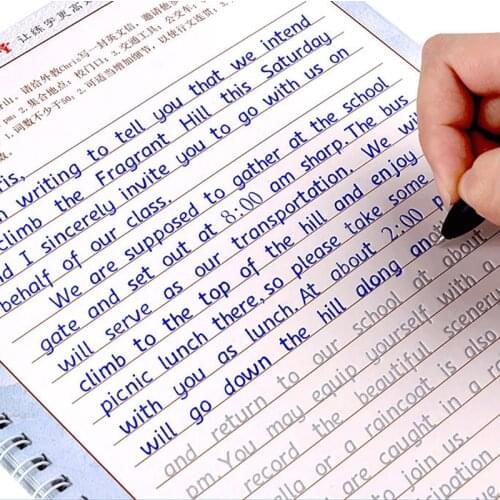 让练字更高
香山, 请给外教Chris写一封英文信, 邀请他
pm; 2. 集合地点: 校门口; 3. 交通工具: 公交车;
1. 词数不少于80; 2. 可适当增加细节, 以使行文连贯; 3.
ris,
m writing to tell you that we intend
climb the Fragrant Hill this Saturday
d I sincerely invite you to go with us on
behalf of our class.
We are supposed to gather at the school
gate and set out at 8:00 am sharp. The bus
will serve as our transportation. We wil
climb to the top of the hill and enjoy
picnic lunch there, so please take some
with you as lunch. At about 2:00 p
will go down the hill along an
and return to our school at about
pm. You may equip yourself with a
record the beautiful scener
lla or a raincoat is also
are caught in a ra
to join us.